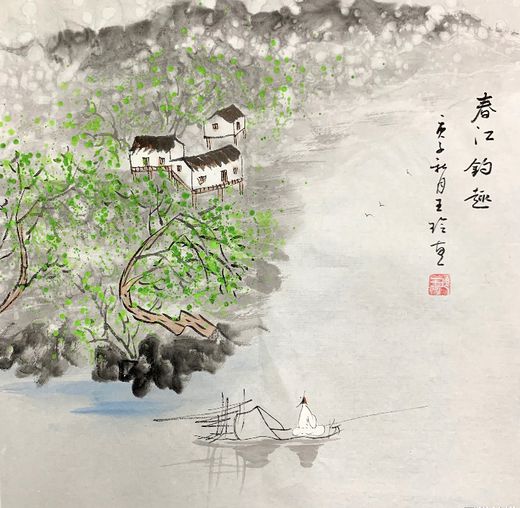 春江钓趣
庚子秋月王玲画